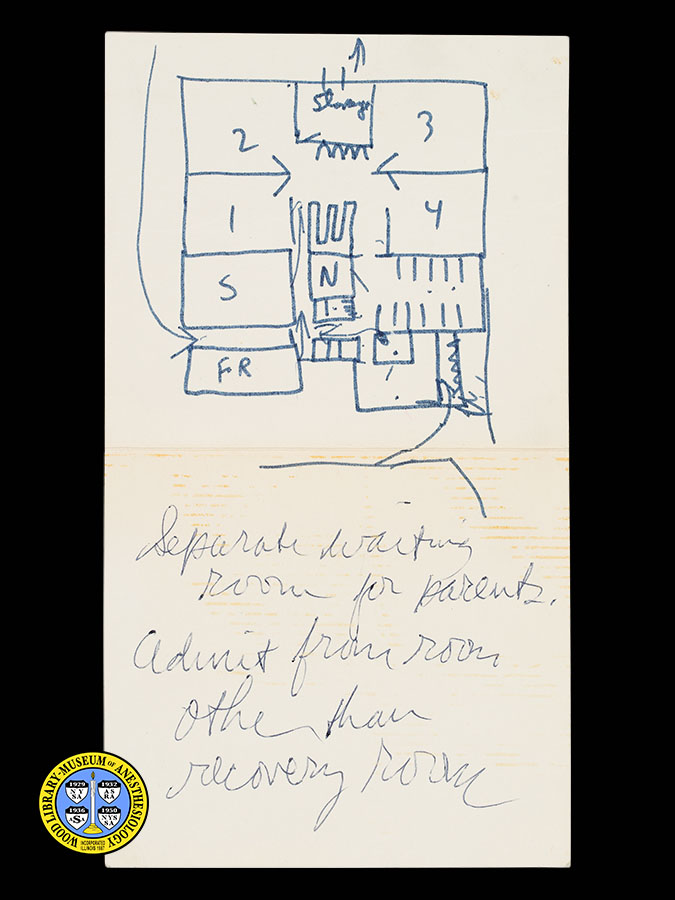 Storage
2
3
1
4
N
S
FR
Separate waiting
room for parents.
Admit from room
other than
recovery room
WOOD LIBRARY-MUSEUM OF ANESTHESIOLOGY
1929
NY
SA
1932
AS
RA
1936
·S·
1950
NYS
SA
INCORPORATED
ILLINOIS 1987